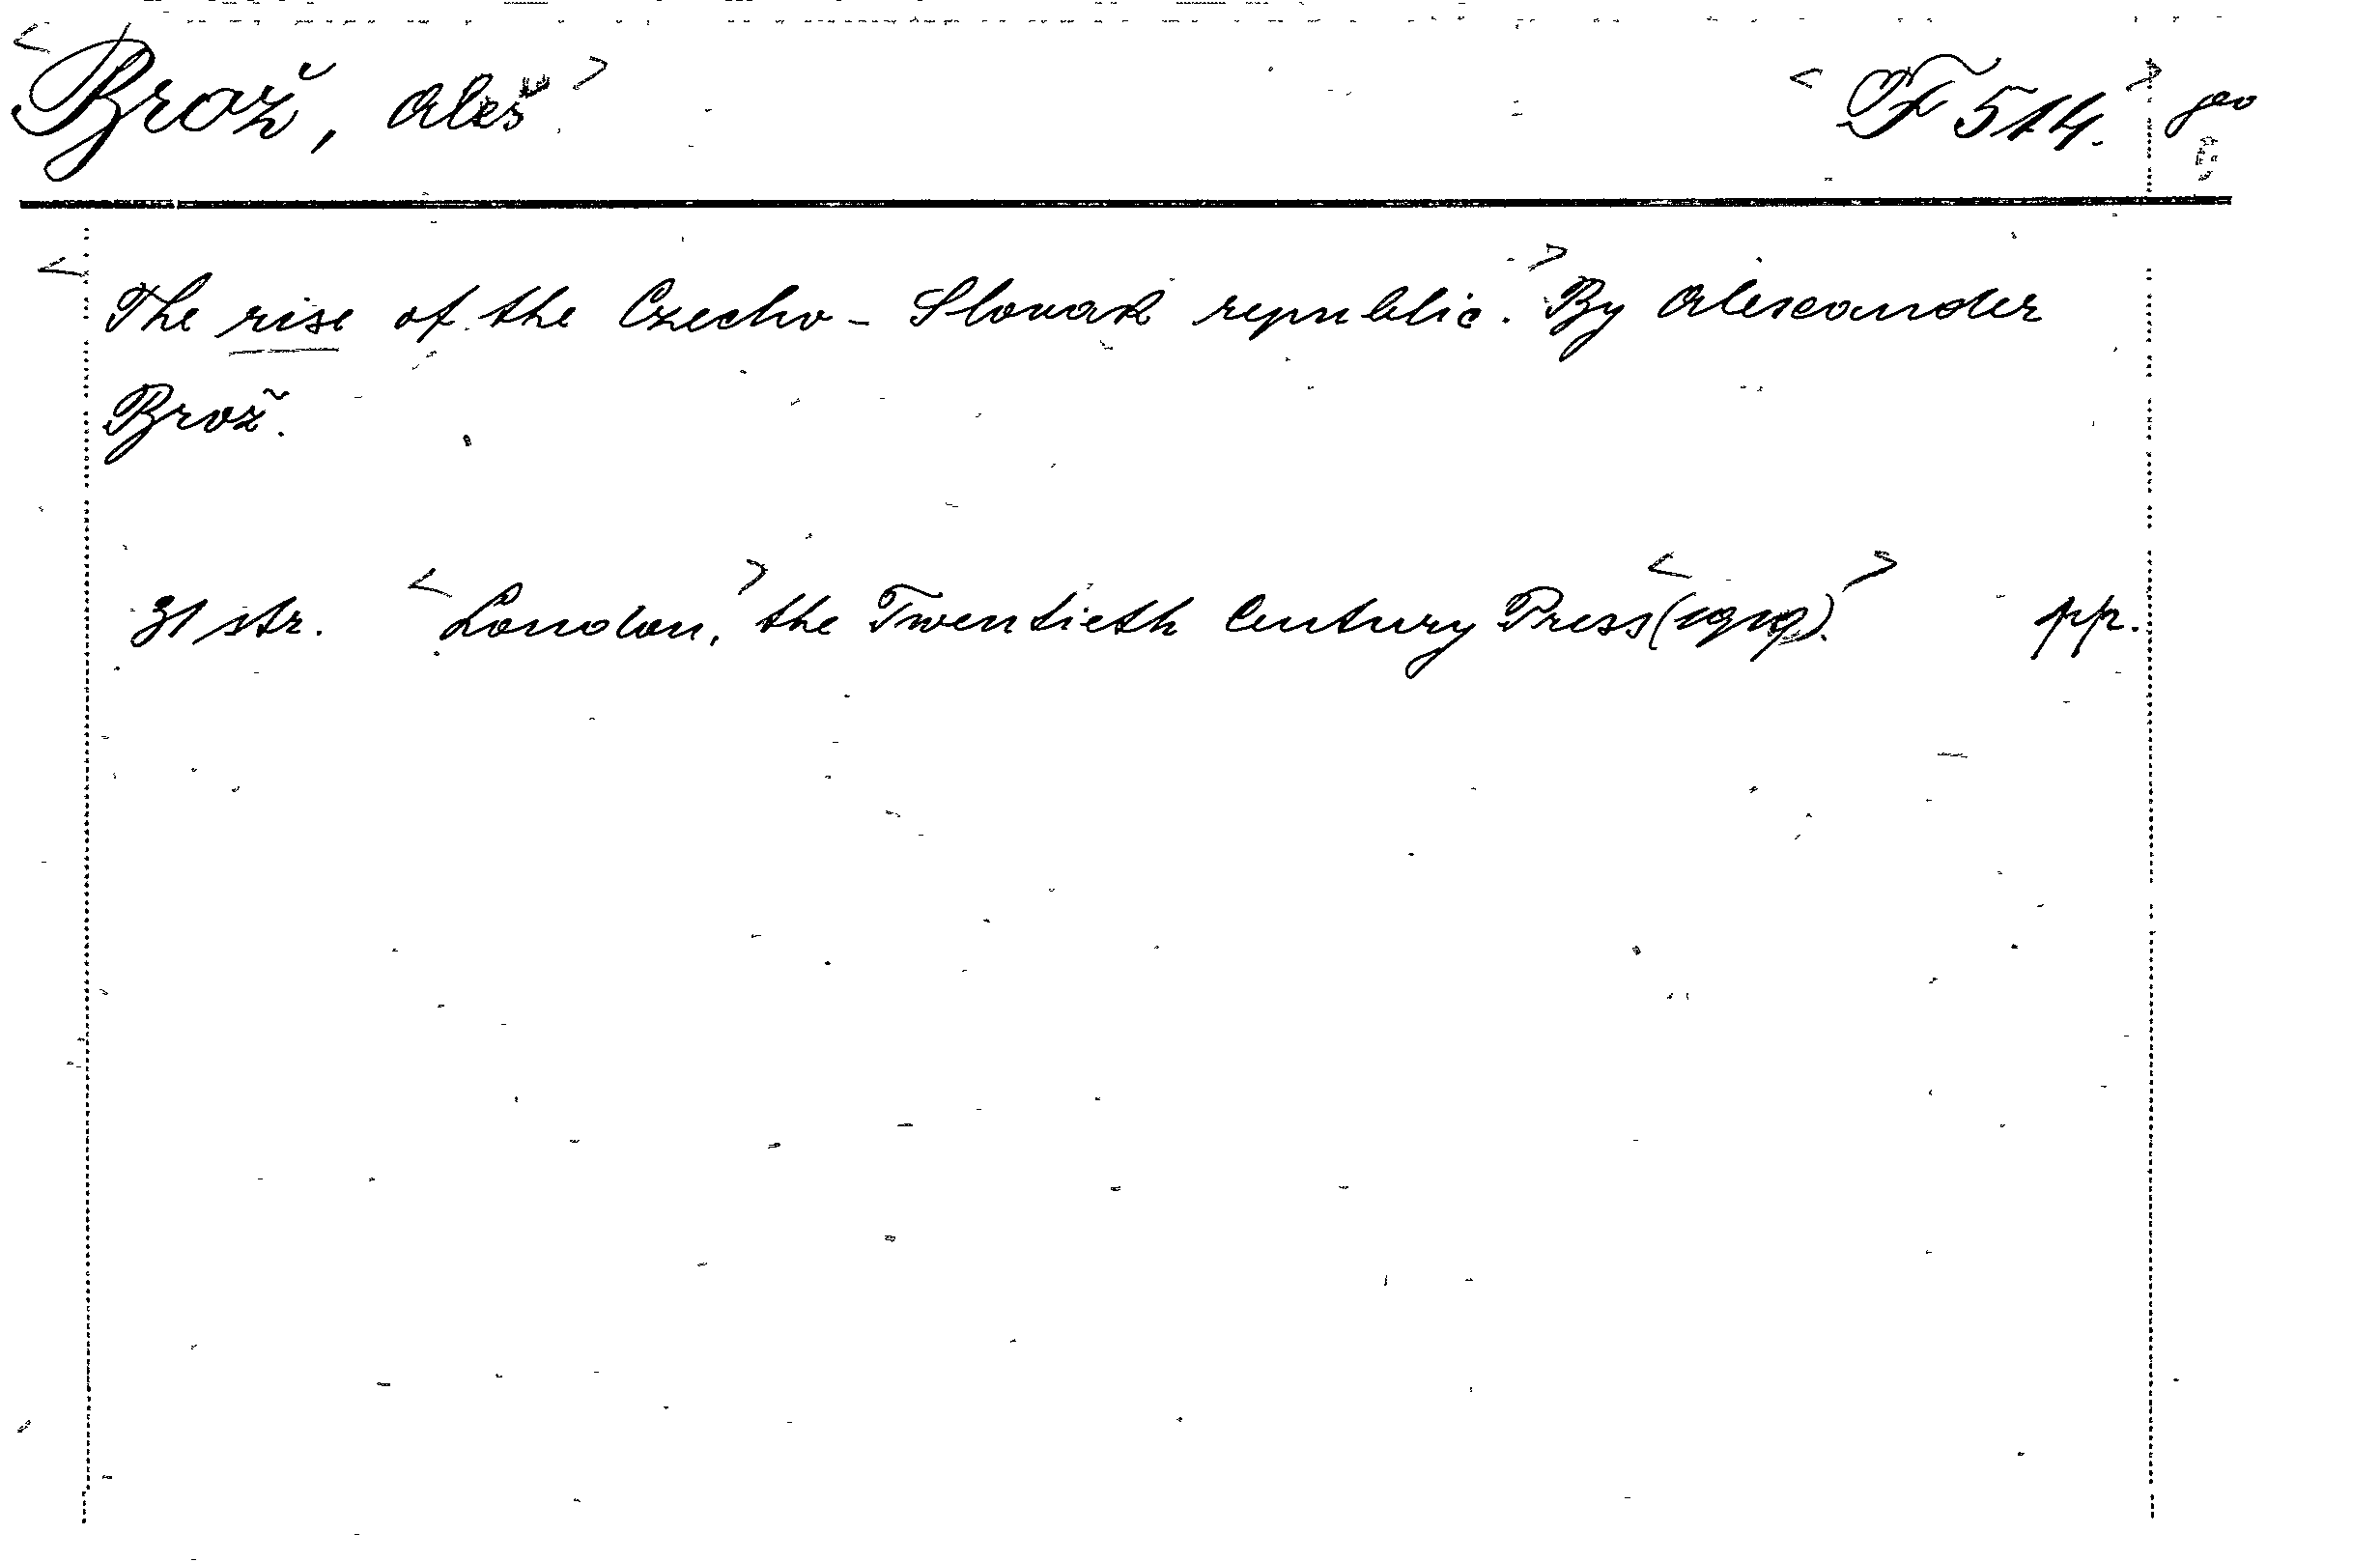 <Brož, Aleš> <F 514.> geo
<The rise of the Czecho-Slovak republic.> By Alexander
Brož.
31 str. <London,> the Twentieth Century Press <(1919).> pp.